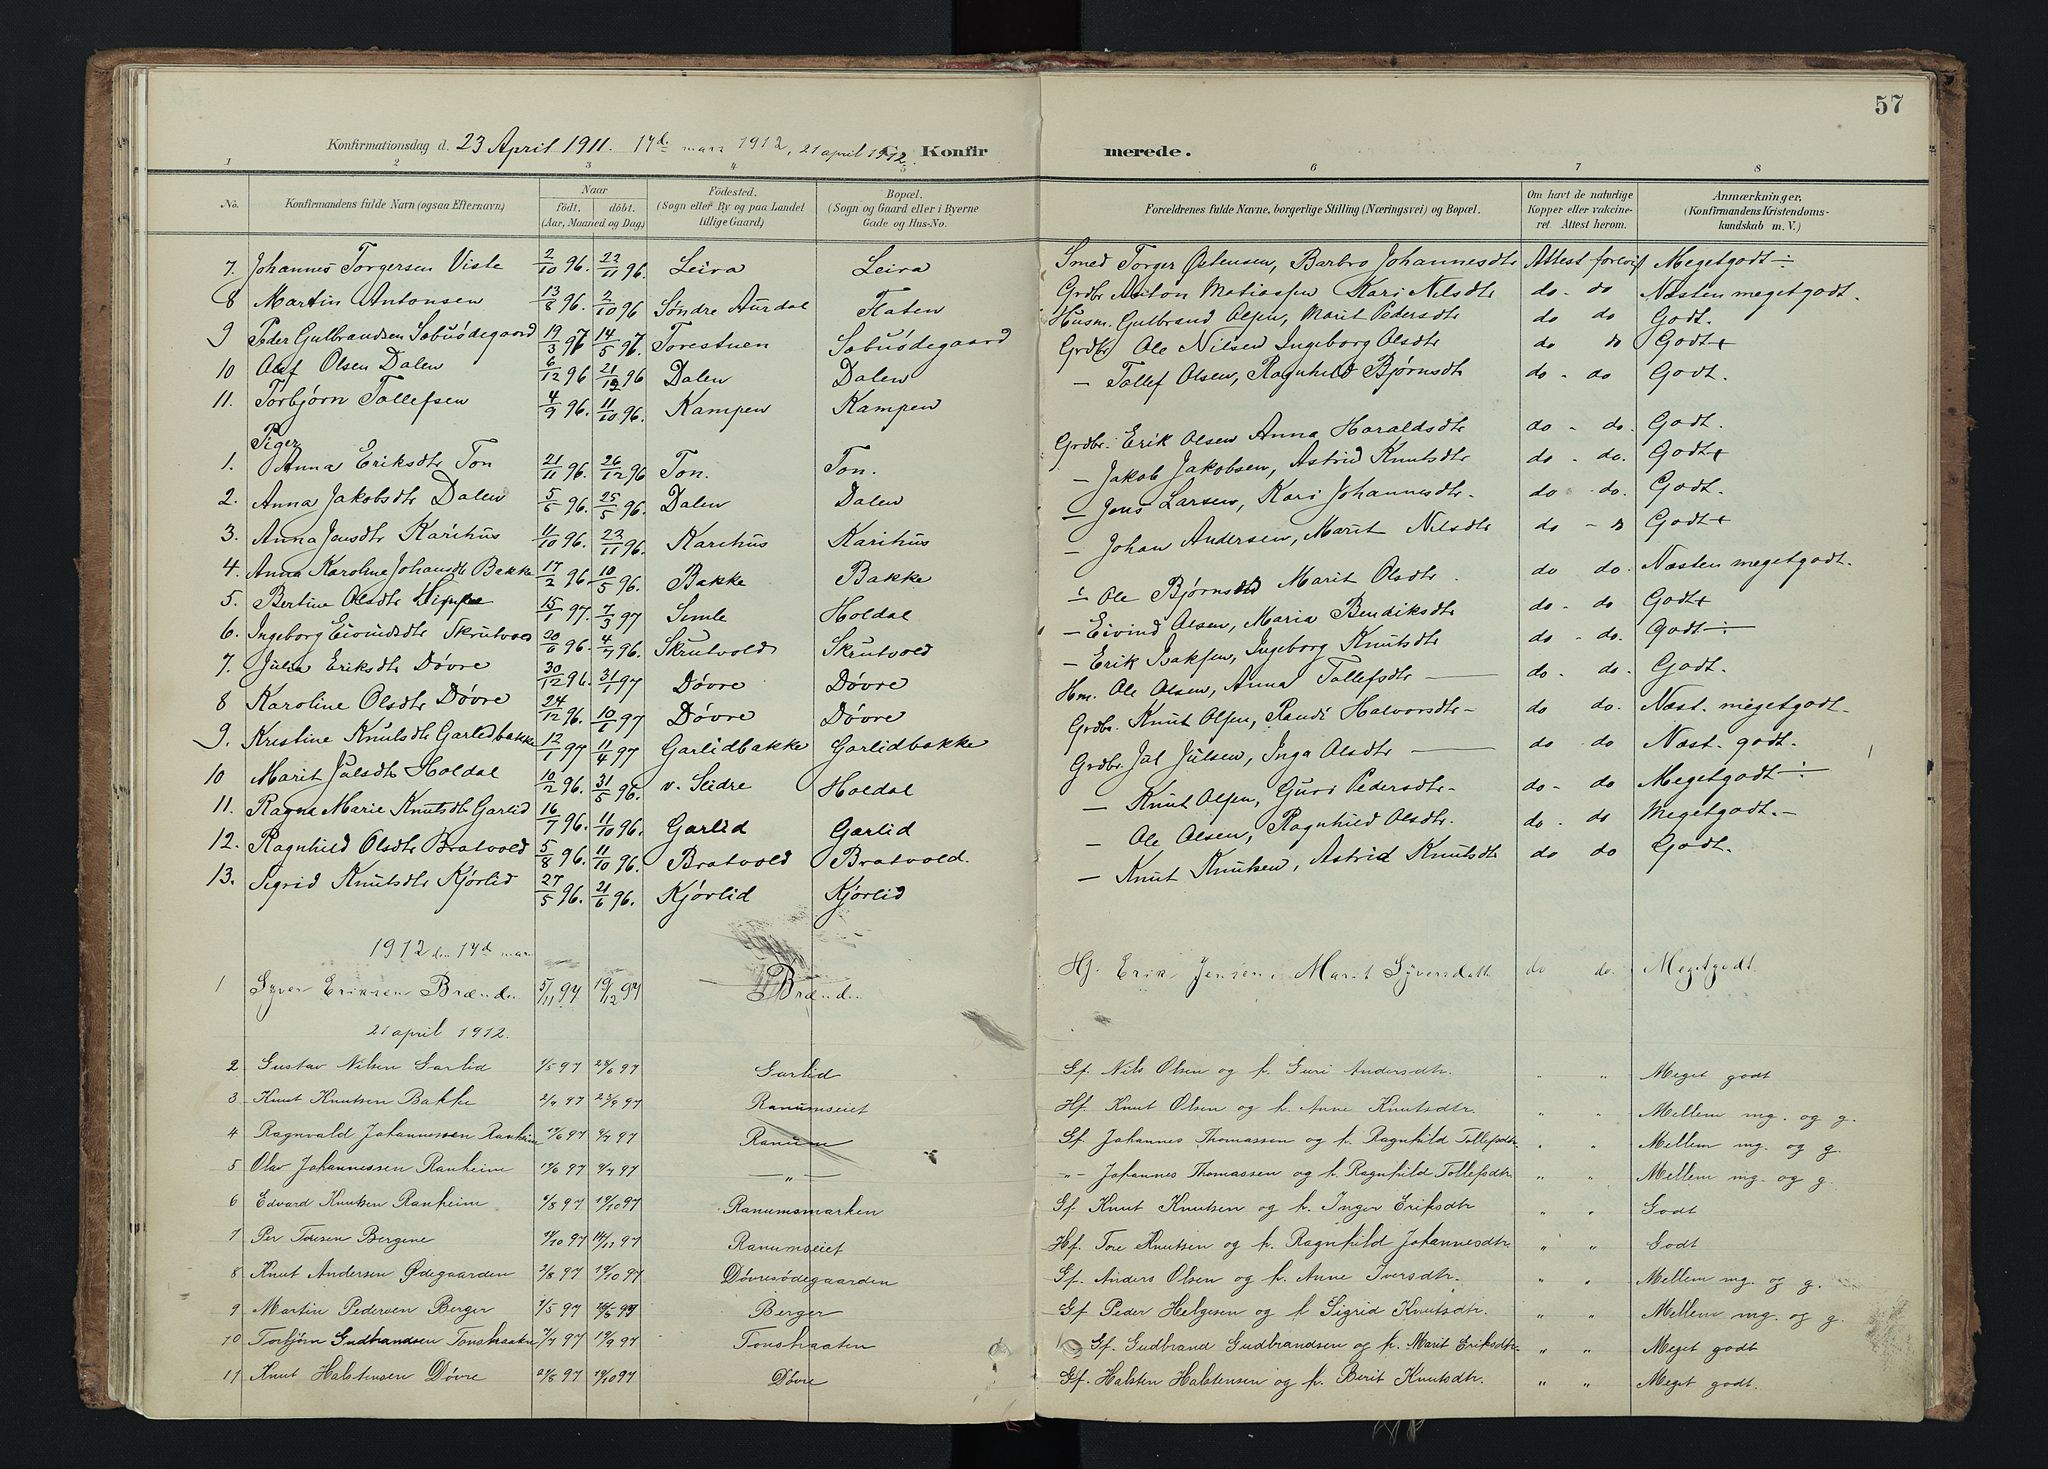 57
Konfirmationsdag d. 23 April 1911. 17d mars 1912, 21 april 1912. C. Konfirmerede.
1 2 3 4 5 6 7 8
No. Konfirmandens fulde Navn (ogsaa Efternavn) Naar födt. döbt. (Aar, Maaned og Dag) Födested. (Sogn eller By og paa Landet tillige Gaard) Bopæl. (Sogn og Gaard eller i Byerne Gade og Hus-No. Forældrenes fulde Navne, borgerlige Stilling (Næringsvei) og Bopæl. Om havt de naturlige Kopper eller vakcineret. Attest herom. Anmærkninger. (Konfirmandens Kristendomskundskab m. V.)
7. Johannes Torgersen Viste 2/10 96. 22/11 96. Leira Leira Smed Torger Østensen, Barbro Johannesdtr Attest forevist Megetgodt ÷
8 Martin Antonsen 13/8 96. 2/10 96 Søndre Aurdal Flaten Grdbr. Anton Matiassen Kari Nilsdtr do - do Næsten megetgodt.
9 Peder Gulbrandsen Søbuødegaard 19/3 97 14/5 97. Forestuen Søbuødegaard Husm. Gulbrand Olsen, Marit Pedersdtr do do Godt.
10 Olsen Dalen 6/12 96 21/12 96 Dalen Dalen Grdbr Ole Nilsen Ingeborg Olsdtr do do Godt+
11. Torbjørn Tollefsen 4/9 96. 11/10 96. Kampen Kampen — Tollef Olsen, Ragnhild Bjørnsdtr do - do Godt.
Piger
1. Anna Eriksdtr Ton 21/11 96. 26/12 96 Ton. Ton. Grdbr. Erik Olsen Anna Haraldsdtr do - do. Godt.
2. Anna Jakobsdtr Dalen 5/5 96. 25/5 96. Dalen Dalen — Jakob Jakobsen, Astrid Knutsdtr do - do. Godt+
3. Anna Jensdtr Karihus 11/10 96. 22/11 96. Karihus Karihus — Jens Larsen, Kari Johannesdtr. do - do. Godt.
4. Anna Karoline Johansdtr Bakke 17/2 96. 10/5 96. Bakke Bakke — Johan Andersen, Marit Nilsdtr do - do Godt+
5. Bertine Olsdtr 15/1 97. 7/3 97 Simle Holdal — Ole Marit Olsdtr. do do. Næsten megetgodt.
6. Ingeborg Eivindsdtr Skrutvold 20/6 96. 4/7 96. Skrutvold Skrutvold — Eivind Olsen, Maria Bendiksdtr do - do Godt+
7. Julia Eriksdtr Døvre 30/12 96. 31/1 97 Døvre Døvre — Erik Isaksen, Ingeborg Knutsdtr do - do. Godt ÷
8 Karoline Olsdtr Døvre 24/12 96. 10/1 97 Døvre Døvre Hm. Ole Olsen, Anna Tollefsdtr — do. do. Godt.
9. Kristine Knutsdtr Garlidbakke 12/1 97 11/4 97 Garlidbakke Garlidbakke Grdbr. Knut Olsen, Randi Halvorsdtr - do do. Næst. megetgodt.
10 Marit Julsdtr Holdal 10/2 96. 31/5 96. v. Slidre Holdal Grdbr. Jul Julsen, Inga Olsdtr — do do Næst. godt.
11. Ragna Marie Knutsdtr Garlid 16/7 96. 11/10 96. Garlid Garlid — Knut Olsen, Guri Pedersdtr. do - do Megetgodt ÷
12. Ragnhild Olsdtr Bratvold 5/8 96. 11/10 96. Bratvold Bratvold. — Ole Olsen, Ragnhild Olsdtr. do. do Megetgodt. -
13. Sigrid Knutsdtr Kjørlid 27/5 96. 21/6 96. Kjørlid Kjørlid — Knut Knutsen, Astrid Knutsdtr do do Godt.
1912 den 17d mars
1 Syver Eriksen Brænden 5/11 97 19/12 97 Brænden Hf. Erik Jensen, Marit Syversdatt do do. Megetgodt
21 april 1912.
2 Gustav Nilsen Garlid 1/5 97 27/6 97 Garlid Gf. Nils Olsen og h. Guri Andersdtr. " " Meget godt
3 Knut Knutsen Bakke 2/7 97 23/9 97 Ranumseiet Hf. Knut Olsen og h. Anne Knutsdtr. " " Mellem mg. og g.
4 Ragnvald Johannessen Ranheim 12/6 97 4/7 97 Ranum Gf. Johannes Thomassen og h. Ragnhild Tollefsdtr. " " Mellem mg. og g.
5 Olav Johannessen Ranheim 12/6 97 4/7 97 — " — " - Johannes Thomassen og h. Ragnhild Tollefsdtr. " " Mellem mg. og g
6 Edvard Knutsen Ranheim 6/8 97 19/10 97 Ranumsmarken Gf. Knut Knutsen og h. Inger Eriksdtr " " Godt
7 Per Toresen Bergene 9/10 97 14/11 97 Ranumseiet Hf. Tore Knutsen og h. Ragnhild Johannesdtr. " " Godt
8 Knut Andersen Ødegaarden 2/8 97 19/10 97 Døvresødegaarden Gf. Anders Olsen og h. Anne Iversdtr. " " Mellem mg. og g.
9 Martin Pedersen Berger 1/5 97 20/6 97 Berger Gf. Peder Helgesen og h. Sigrid Knutsdtr. " " Mellem mg. og g.
10 Torbjörn Gudbrandsen Tonshaaten 7/7 97 19/9 97 Tonshaaten Gf. Gudbrand Gudbrandsen og h. Marit Eriksdtr. " " Meget godt
11 Knut Halstensen Dövre 24/8 97 19/10 97 Døvre Gf. Halsten Halstensen og h. Berit Knutsdtr. " " Meget godt.